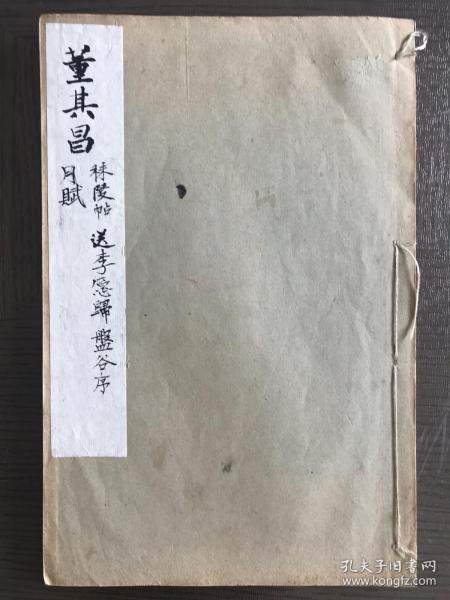 董其昌
秣陵帖 送李愿歸盤谷序
月賦
孔夫子旧书网
www.kongfz.com